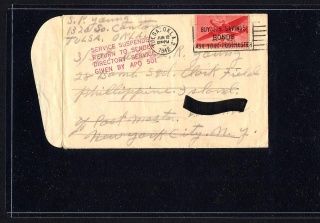 S. R. Young
1320 So. Cheyenne
TULSA, OKLA.
SERVICE SUSPENDED
RETURN TO SENDER
DIRECTORY SERVICE
GIVEN BY APO 501
TULSA, OKLA.
JUN
1942
BUY
SAVINGS
BONDS
ASK YOUR POSTMASTER
R. Young
28 Bomb Sqd. Clark Field
Phillippine Island.
c/o Post master
New York City, N.Y.